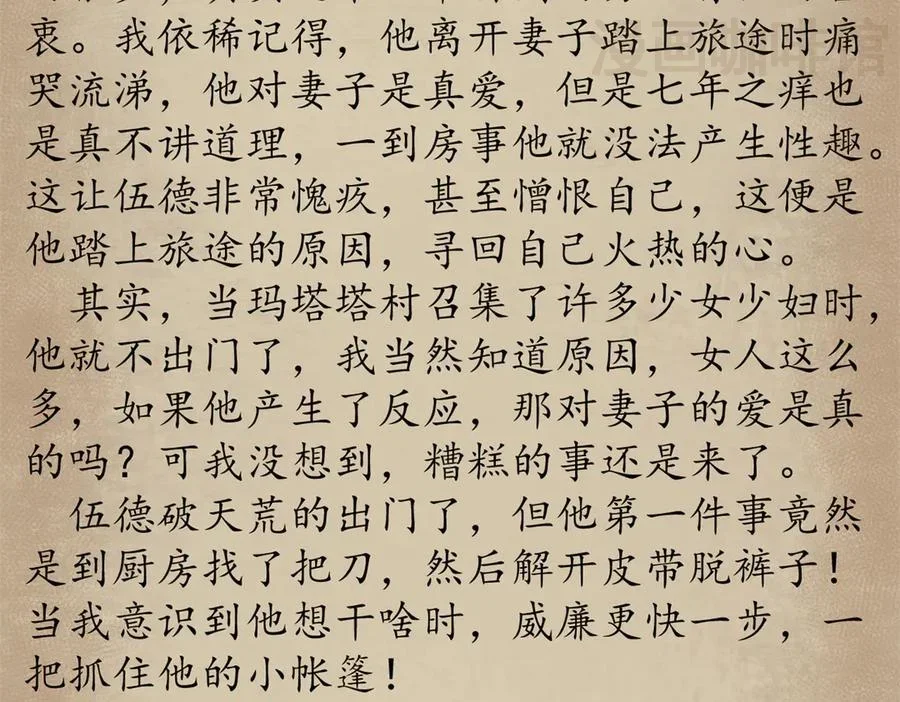 衷。我依稀记得，他离开妻子踏上旅途时痛
哭流涕，他对妻子是真爱，但是七年之痒也
是真不讲道理，一到房事他就没法产生性趣。
这让伍德非常愧疚，甚至憎恨自己，这便是
他踏上旅途的原因，寻回自己火热的心。
其实，当玛塔塔村召集了许多少女少妇时，
他就不出门了，我当然知道原因，女人这么
多，如果他产生了反应，那对妻子的爱是真
的吗？可我没想到，糟糕的事还是来了。
伍德破天荒的出门了，但他第一件事竟然
是到厨房找了把刀，然后解开皮带脱裤子！
当我意识到他想干啥时，威廉更快一步，一
把抓住他的小帐篷！